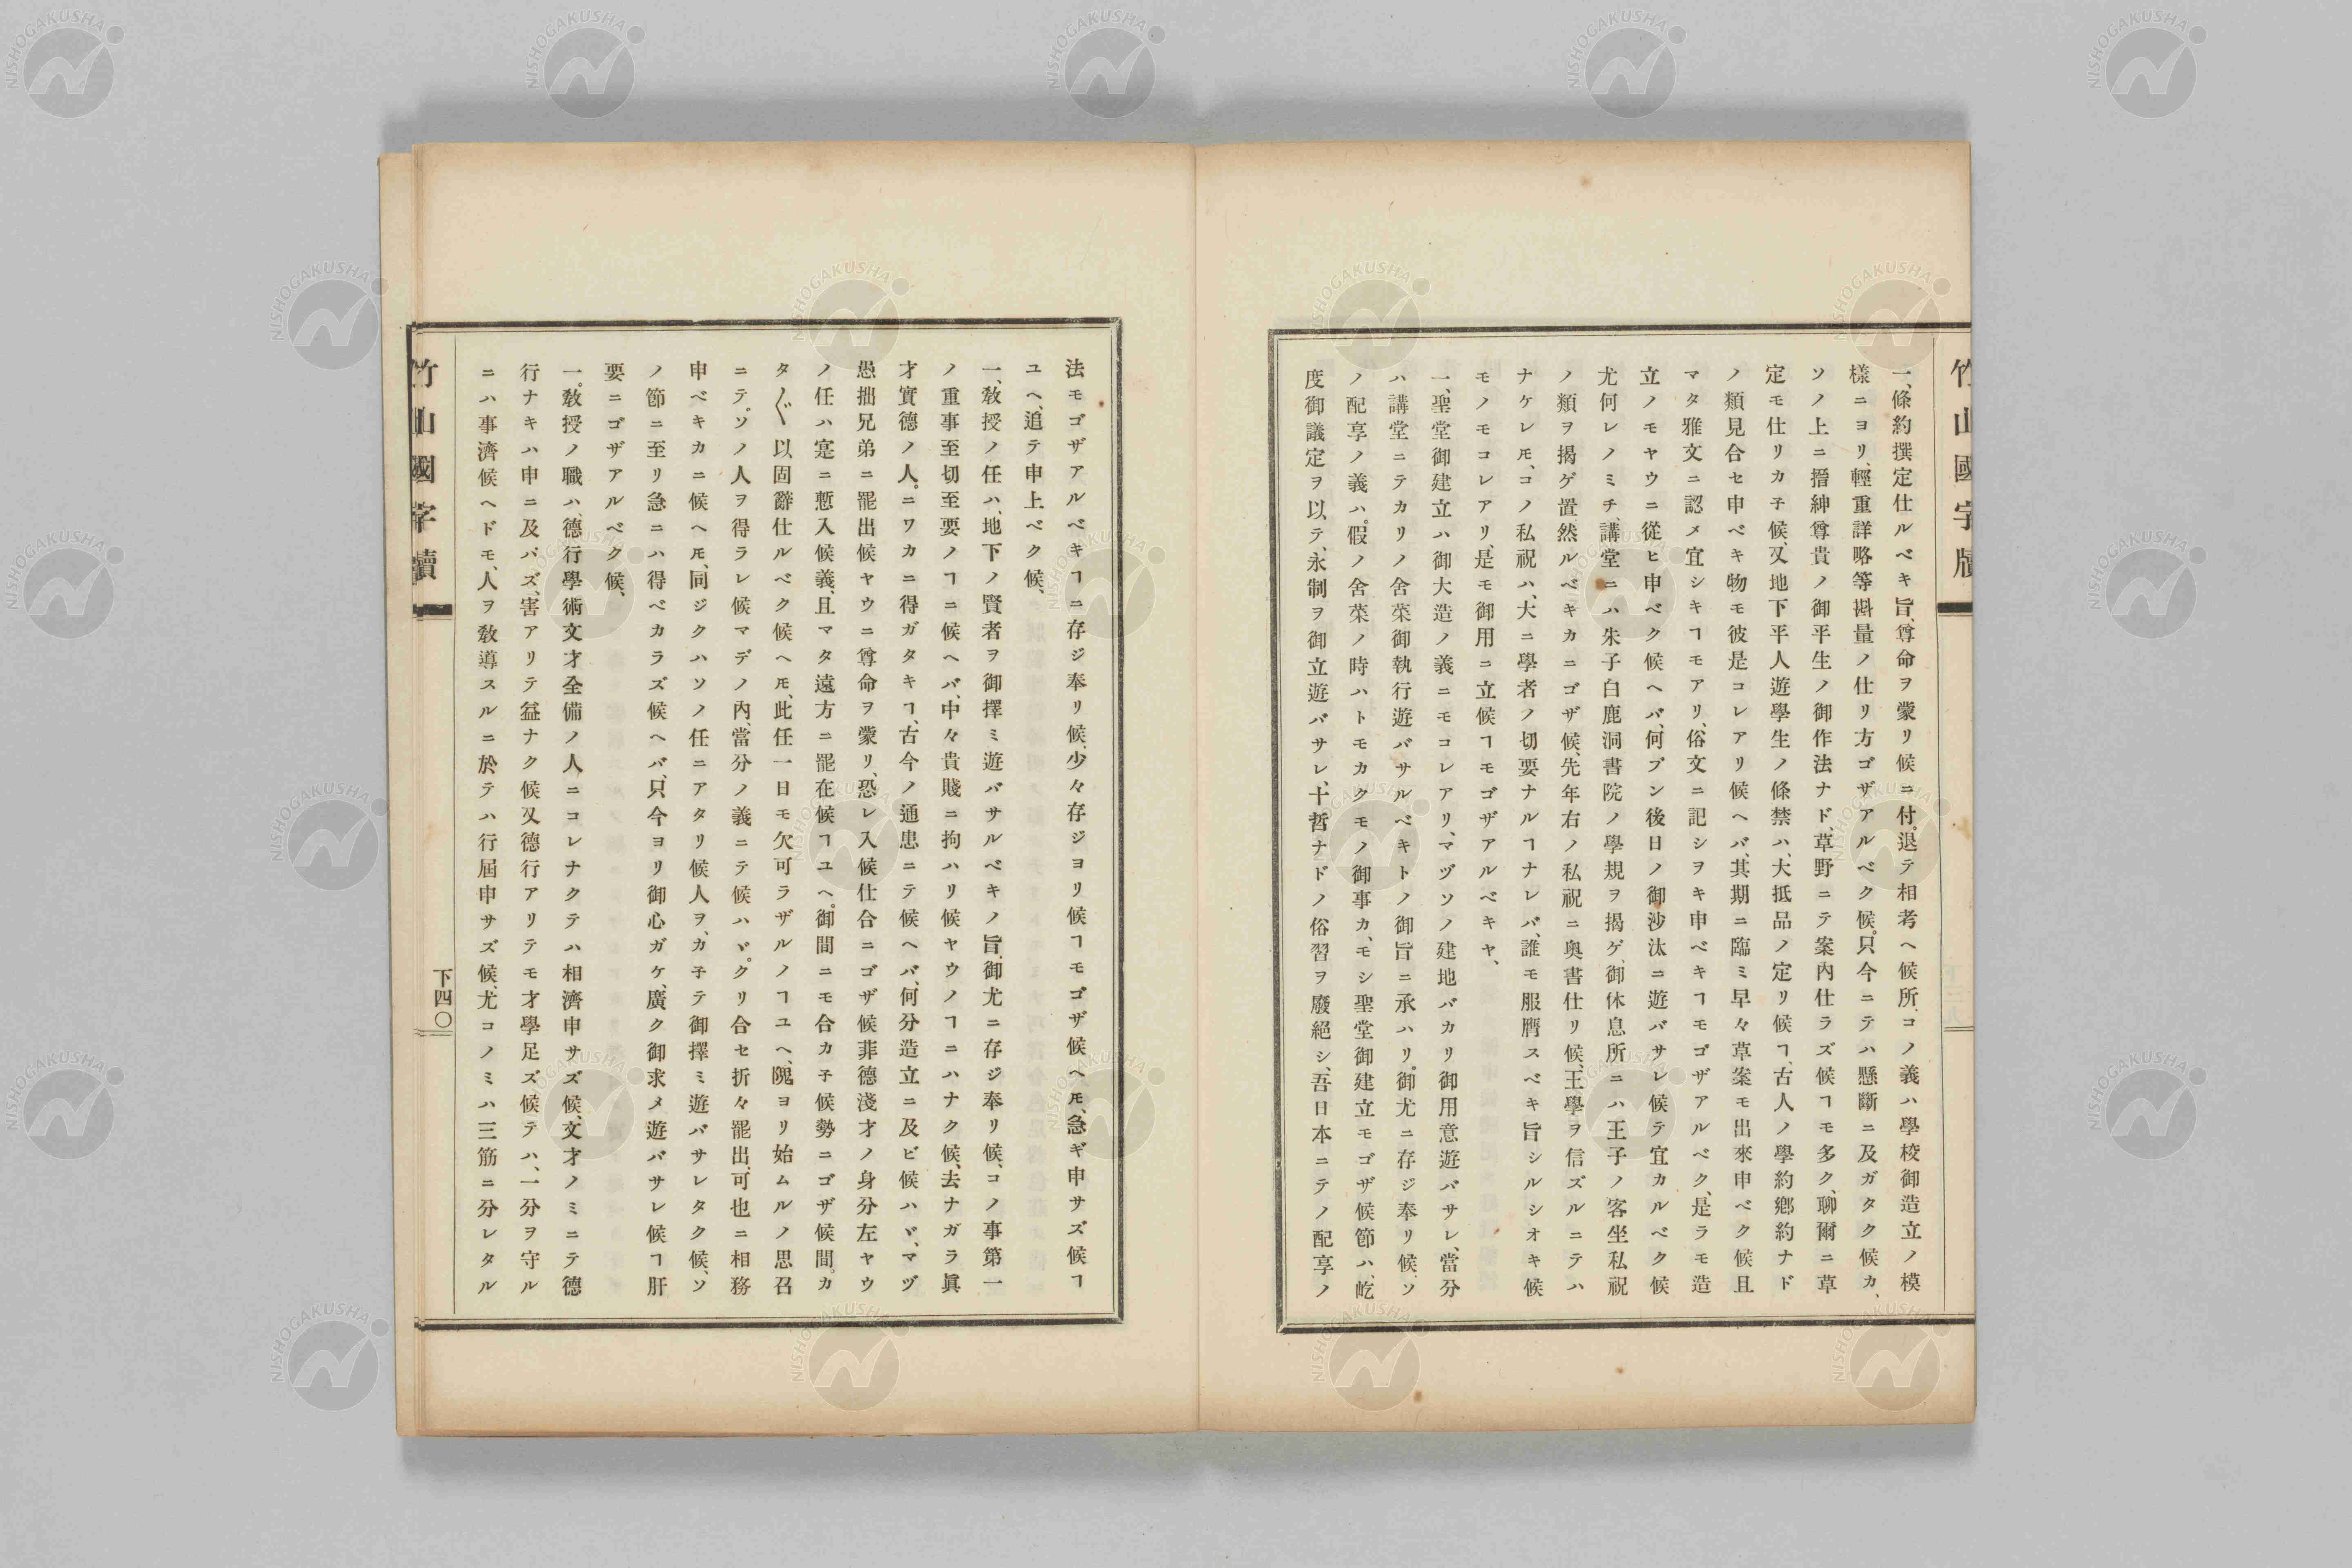 竹山國字牘
一、條約撰定仕ルベキ旨、尊命ヲ蒙リ候ニ付。退テ相考ヘ候所、コノ義ハ學校御造立ノ模
樣ニヨリ、輕重詳略等斟量ノ仕リ方ゴザアルベク候。只今ニテハ懸斷ニ及ガタク候カ、
ソノ上ニ搢紳尊貴ノ御平生ノ御作法ナド、草野ニテ案內仕ラズ候ヿモ多ク、聊爾ニ草
定モ仕リカネ候、又地下平人遊學生ノ條禁ハ、大抵品ノ定リ候ヿ、古人ノ學約鄕約ナド
ノ類見合セ申ベキ物モ彼是コレアリ候ヘバ、其期ニ臨ミ早々草案モ出來申ベク候且
マタ雅文ニ認メ宜シキヿモアリ、俗文ニ記シヲキ申ベキヿモゴザアルベク、是ラモ造
立ノモヤウニ從ヒ申ベク候ヘバ、何プン後日ノ御沙汰ニ遊バサレ候テ宜カルベク候
尤何レノミチ、講堂ニハ朱子白鹿洞書院ノ學規ヲ揭ゲ、御休息所ニハ王子ノ客坐私祝
ノ類ヲ揭ゲ置然ルベキカニゴザ候、先年右ノ私祝ニ奥書仕リ候、王學ヲ信ズルニテハ
ナケレ𪜈、コノ私祝ハ、大ニ學者ノ切要ナルヿナレバ、誰モ服膺スベキ旨シルシオキ候
モノモコレアリ、是モ御用ニ立候ヿモゴザアルベキヤ、
一、聖堂御建立ハ御大造ノ義ニモコレアリ、マヅソノ建地バカリ御用意遊バサレ、當分
ハ講堂ニテカリノ舍菜御執行遊バサルベキトノ御旨ニ承ハリ。御尤ニ存ジ奉リ候、ソ
ノ配享ノ義ハ。假ノ舍菜ノ時ハトモカクモノ御事カ、モシ聖堂御建立モゴザ候節ハ、屹
度御議定ヲ以テ、永制ヲ御立遊バサレ、十哲ナドノ俗習ヲ廢絕シ、吾日本ニテノ配享ノ
法モゴザアルベキヿニ存ジ奉リ候、少々存ジヨリ候ヿモゴザ候ヘ𪜈、急ギ申サズ候ヿ
ユヘ、追テ申上ベク候、
一、敎授ノ任ハ、地下ノ賢者ヲ御擇ミ遊バサルベキノ旨、御尤ニ存ジ奉リ候、コノ事第一
ノ重事至切至要ノヿニ候ヘバ、中々貴賤ニ拘ハリ候ヤウノヿニハナク候、去ナガラ眞
才實德ノ人。ニワカニ得ガタキヿ、古今ノ通患ニテ候ヘバ、何分造立ニ及ビ候ハヾ、マヅ
愚拙兄弟ニ罷出候ヤウニ尊命ヲ蒙リ、恐レ入候仕合ニゴザ候菲德淺才ノ身分左ヤウ
ノ任ハ寔ニ慙入候義、且マタ遠方ニ罷在候ヿユヘ。御間ニモ合カネ候勢ニゴザ候間。カ
タ〴〵以固辭仕ルベク候ヘ𪜈、此任一日モ欠可ラザルノヿユヘ、隗ヨリ始ムルノ思召
ニテ。ソノ人ヲ得ラレ候マデノ內、當分ノ義ニテ候ハヾ。クリ合セ折々罷出、可也ニ相務
申ベキカニ候ヘ𪜈、同ジクハソノ任ニアタリ候人ヲ、カネテ御擇ミ遊バサレタク候、ソ
ノ節ニ至リ急ニハ得ベカラズ候ヘバ、只今ヨリ御心ガケ、廣ク御求メ遊バサレ候ヿ肝
要ニゴザアルベク候、
一。敎授ノ職ハ、德行學術文才全備ノ人ニコレナクテハ相濟申サズ候、文才ノミニテ德
行ナキハ申ニ及バズ、害アリテ益ナク候又德行アリテモ才學足ズ候テハ、一分ヲ守ル
ニハ事濟候ヘドモ、人ヲ敎導スルニ於テハ行屆申サズ候、尤コノミハ三筋ニ分レタル
竹山國字牘
下四〇